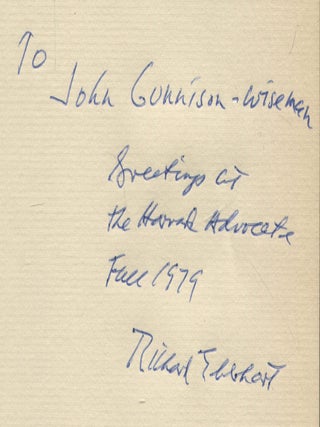 To
John Gunnison-Wiseman
Greetings at
the Harvard Advocate
Fall 1979
Richard Eberhart